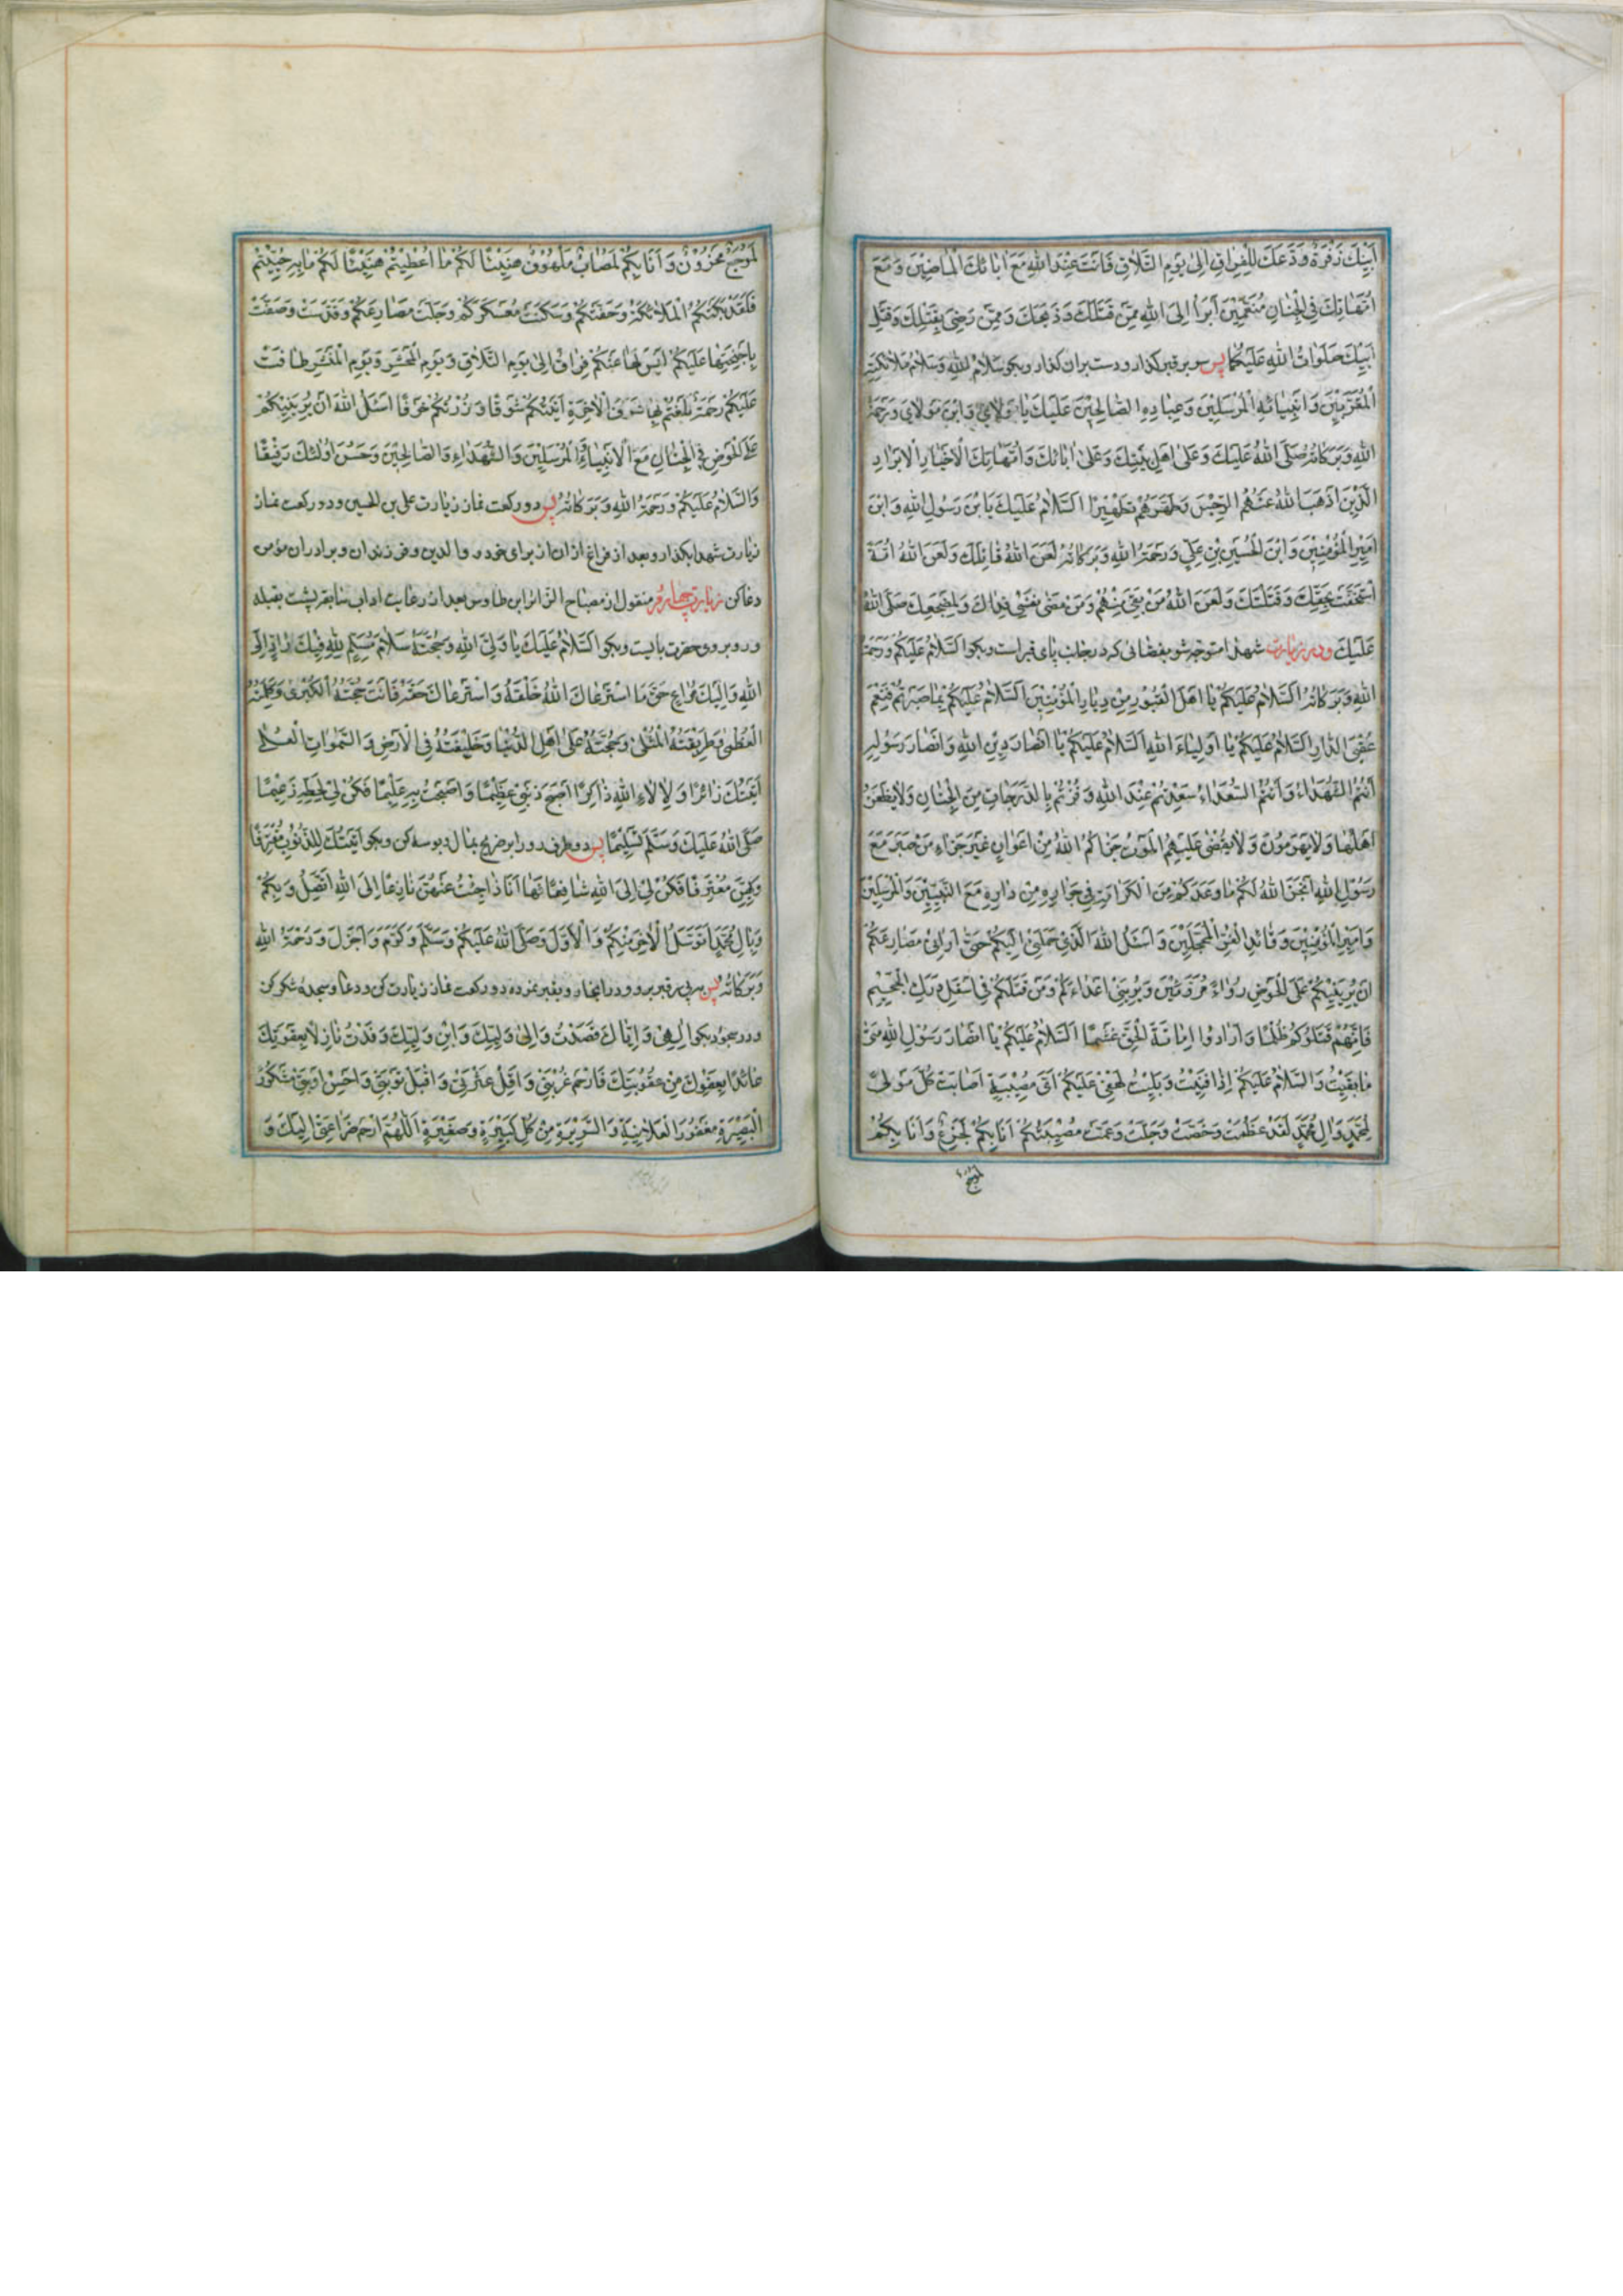 اَبيكَ زَفْرَةٌ وَدَّعَكَ لِلْفِراقِ اِلىٰ يَوْمِ التَّلاقِ فَاَنْتَ عِنْدَ اللهِ مَعَ اٰبائِكَ الْماضينَ وَ مَعَ
اُمَّهاتِكَ فِى الْجِنانِ مُنَعَّمينَ اَبْرَأُ اِلَى اللهِ مِمَّنْ قَتَلَكَ وَ ذَبَحَكَ وَ مِمَّنْ رَضِىَ بِقَتْلِكَ وَ قَتْلِ
اَبيكَ صَلَواتُ اللهِ عَلَيْكُما پس سر بر قبر گذار و دست بر ان گذار و بگو سَلامُ اللهِ وَ سَلامُ مَلائِكَتِهِ
الْمُقَرَّبينَ وَ اَنْبِيائِهِ الْمُرْسَلينَ وَ عِبادِهِ الصّالِحينَ عَلَيْكَ يا مَوْلايَ وَ ابْنَ مَوْلايَ وَ رَحْمَةُ
اللهِ وَ بَرَكاتُهُ صَلَّى اللهُ عَلَيْكَ وَ عَلىٰ اَهْلِ بَيْتِكَ وَ عَلىٰ اٰبائِكَ وَ اُمَّهاتِكَ الْاَخْيارِ الْاَبْرارِ
الَّذينَ اَذْهَبَ اللهُ عَنْهُمُ الرِّجْسَ وَ طَهَّرَهُمْ تَطْهيرًا اَلسَّلامُ عَلَيْكَ يَا بْنَ رَسُولِ اللهِ وَ ابْنَ
اَميرِ الْمُؤْمِنينَ وَ ابْنَ الْحُسَيْنِ بْنِ عَلِيٍّ وَ رَحْمَةُ اللهِ وَ بَرَكاتُهُ لَعَنَ اللهُ قاتِلَكَ وَ لَعَنَ اللهُ اُمَّةً
اسْتَخَفَّتْ بِحَقِّكَ وَ قَتَلَتْكَ وَ لَعَنَ اللهُ مَنْ بَقِىَ مِنْهُمْ وَ مَنْ مَضىٰ نَفْسى فِداكَ وَ لِمَضْجَعِكَ صَلَّى اللهُ
عَلَيْكَ و در زيارت شهدا متوجه شو بفضائى كه در جانب پاى قبر است و بگو اَلسَّلامُ عَلَيْكُمْ وَ رَحْمَةُ
اللهِ وَ بَرَكاتُهُ اَلسَّلامُ عَلَيْكُمْ يا اَهْلَ الْقُبُورِ مِنْ دِيارِ الْمُؤْمِنينَ اَلسَّلامُ عَلَيْكُمْ بِما صَبَرْتُمْ فَنِعْمَ
عُقْبَى الدّارِ اَلسَّلامُ عَلَيْكُمْ يا اَوْلِياءَ اللهِ اَلسَّلامُ عَلَيْكُمْ يا اَنْصارَ دينِ اللهِ وَ اَنْصارَ رَسُولِهِ
اَنْتُمُ الشُّهَداءُ وَ اَنْتُمُ السُّعَداءُ سَعِدْتُمْ عِنْدَ اللهِ وَ فُزْتُمْ بِالدَّرَجاتِ مِنَ الْجِنانِ وَ لا يَظْعَنُ
اَهْلُها وَ لا يَهْرَمُونَ وَ لا يُقْضىٰ عَلَيْهِمُ الْمَوْتُ جَزاكُمُ اللهُ مِنْ اَعْوانٍ خَيْرَ جَزاءِ مَنْ صَبَرَ مَعَ
رَسُولِ اللهِ اَنْجَزَ اللهُ لَكُمْ ما وَعَدَكُمْ مِنَ الْكَرامَةِ فى جِوارِهِ مِنْ دارِهِ مَعَ النَّبِيّينَ وَ الْمُرْسَلينَ
وَ اَميرِ الْمُؤْمِنينَ وَ قائِدِ الْغُرِّ الْمُحَجَّلينَ وَ اَسْئَلُ اللهَ الَّذى حَمَلَنى اِلَيْكُمْ حَتّىٰ اَرانى مَصارِعَكُمْ
اَنْ يُرِيَنيكُمْ عَلَى الْحَوْضِ رِواءً مَرْوِيّينَ وَ يُرِيَنى اَعْداءَكُمْ وَ مَنْ قَتَلَكُمْ فى اَسْفَلِ دَرَكِ الْجَحيمِ
فَاِنَّهُمْ قَتَلُوكُمْ ظُلْمًا وَ اَرادُوا اِماتَةَ الْحَقِّ غَشْمًا اَلسَّلامُ عَلَيْكُمْ يا اَنْصارَ رَسُولِ اللهِ مِنّى
ما بَقيتُ وَ السَّلامُ عَلَيْكُمْ اِذا فَنيتُ وَ بَليتُ لَهْفى عَلَيْكُمْ اَىُّ مُصيبَةٍ اَصابَتْ كُلَّ مَوْلىً
لِمُحَمَّدٍ وَ اٰلِ مُحَمَّدٍ لَقَدْ عَظُمَتْ وَ خَصَّتْ وَ جَلَّتْ وَ عَمَّتْ مُصيبَتُكُمْ اَنَا بِكُمْ لَجَزِعٌ وَ اَنَا بِكُمْ
لَمُوجَعٌ
لَمُوجَعٌ مَحْزُونٌ وَ اَنَا بِكُمْ لَمُصابٌ مَلْهُوفٌ هَنيئًا لَكُمْ ما اُعْطيتُمْ هَنيئًا لَكُمْ ما بِهِ حُيّيتُمْ
فَلَقَدْ بَكَتْكُمُ الْمَلائِكَةُ وَ حَفَّتْكُمْ وَ سَكَنَتْ مُعَسْكَرَكُمْ وَ حَلَّتْ مَصارِعَكُمْ وَ قَدَّسَتْ وَ صَفَّتْ
بِاَجْنِحَتِها عَلَيْكُمْ لَيْسَ لَها عَنْكُمْ فِراقٌ اِلىٰ يَوْمِ التَّلاقِ وَ يَوْمِ الْمَحْشَرِ وَ يَوْمِ الْمَنْشَرِ طافَتْ
عَلَيْكُمْ رَحْمَةٌ بَلَغْتُمْ بِها شَرَفَ الْاٰخِرَةِ اَتَيْتُكُمْ شَوْقًا وَ زُرْتُكُمْ خَوْفًا اَسْئَلُ اللهَ اَنْ يُرِيَنيكُمْ
عَلَى الْحَوْضِ فِى الْجِنانِ مَعَ الْاَنْبِياءِ وَ الْمُرْسَلينَ وَ الشُّهَداءِ وَ الصّالِحينَ وَ حَسُنَ اُولٰئِكَ رَفيقًا
وَ السَّلامُ عَلَيْكُمْ وَ رَحْمَةُ اللهِ وَ بَرَكاتُهُ پس دو ركعت نماز زيارت على بن الحسين و دو ركعت نماز
زيارت شهدا بگذار و بعد از فراغ از ان از براى خود و والدين و فرزندان و برادران مؤمن
دعا كن زيارت چهارم منقول از مصباح الزائر ابن طاوس بعد از رعايت اداب سابقه پشت بقبله
و رو بروى حضرت بايست و بگو اَلسَّلامُ عَلَيْكَ يا وَلِىَّ اللهِ وَ حُجَّتَهُ سَلامَ مُسَلِّمٍ لِلّٰهِ فيكَ رادٍّ اِلَى
اللهِ وَ اِلَيْكَ مُراعٍ حَقَّ مَا اسْتَرْعاكَ اللهُ خَلْقَهُ وَ اسْتَرْعاكَ حَقَّهُ فَاَنْتَ حُجَّتُهُ الْكُبْرىٰ وَ كَلِمَتُهُ
الْعُظْمىٰ وَ طَريقَتُهُ الْمُثْلىٰ وَ حُجَّتُهُ عَلىٰ اَهْلِ الدُّنْيا وَ خَليفَتُهُ فِى الْاَرْضِ وَ السَّمٰواتِ الْعُلىٰ
اَتَيْتُكَ زائِرًا وَ لِاٰلاءِ اللهِ ذاكِرًا اَصْبَحَ ذَنْبى عَظيمًا وَ اَصْبَحْتُ بِهِ عَليمًا فَكُنْ لى لِحَطِّهِ زَعيمًا
صَلَّى اللهُ عَلَيْكَ وَ سَلَّمَ تَسْليمًا پس دو طرف رو را بر ضريح بمال و بوسه كن و بگو اَتَيْتُكَ لِلذُّنُوبِ مُقْتَرِفًا
وَ بِهِنَّ مُعْتَرِفًا فَكُنْ لى اِلَى اللهِ شافِعًا فَها اَنَا ذا جِئْتُ عَنْهُنَّ نازِعًا اِلَى اللهِ اَتَّصِلُ وَ بِكُمْ
وَ بِاٰلِ مُحَمَّدٍ اَتَوَسَّلُ الْاٰخِرِ مِنْكُمْ وَ الْاَوَّلِ وَ صَلَّى اللهُ عَلَيْكُمْ وَ سَلَّمَ وَ كَرَّمَ وَ اَجْزَلَ وَ رَحْمَةُ اللهِ
وَ بَرَكاتُهُ پس بر قبر برو و در انجا دو ركعت نماز زيارت كن و دعا و سجده شكر كن
و در سجود بگو اِلٰهى وَ اِيّاكَ قَصَدْتُ وَ اِلىٰ وَلِيِّكَ وَ ابْنِ وَلِيِّكَ وَفَدْتُ نازِلًا بِعَقْوَتِكَ
عائِذًا بِعَفْوِكَ مِنْ عُقُوبَتِكَ فَارْحَمْ غُرْبَتى وَ اَقِلْ عَثْرَتى وَ اقْبَلْ تَوْبَتى وَ اَحْسِنْ اَوْبَتى مَشْكُورَ
الْبَصيرَةِ مَغْفُورَ الْعَلانِيَةِ وَ السَّريرَةِ مِنْ كُلِّ كَبيرَةٍ وَ صَغيرَةٍ اَللّٰهُمَّ ارْحَمْ ضَراعَتى اِلَيْكَ وَ